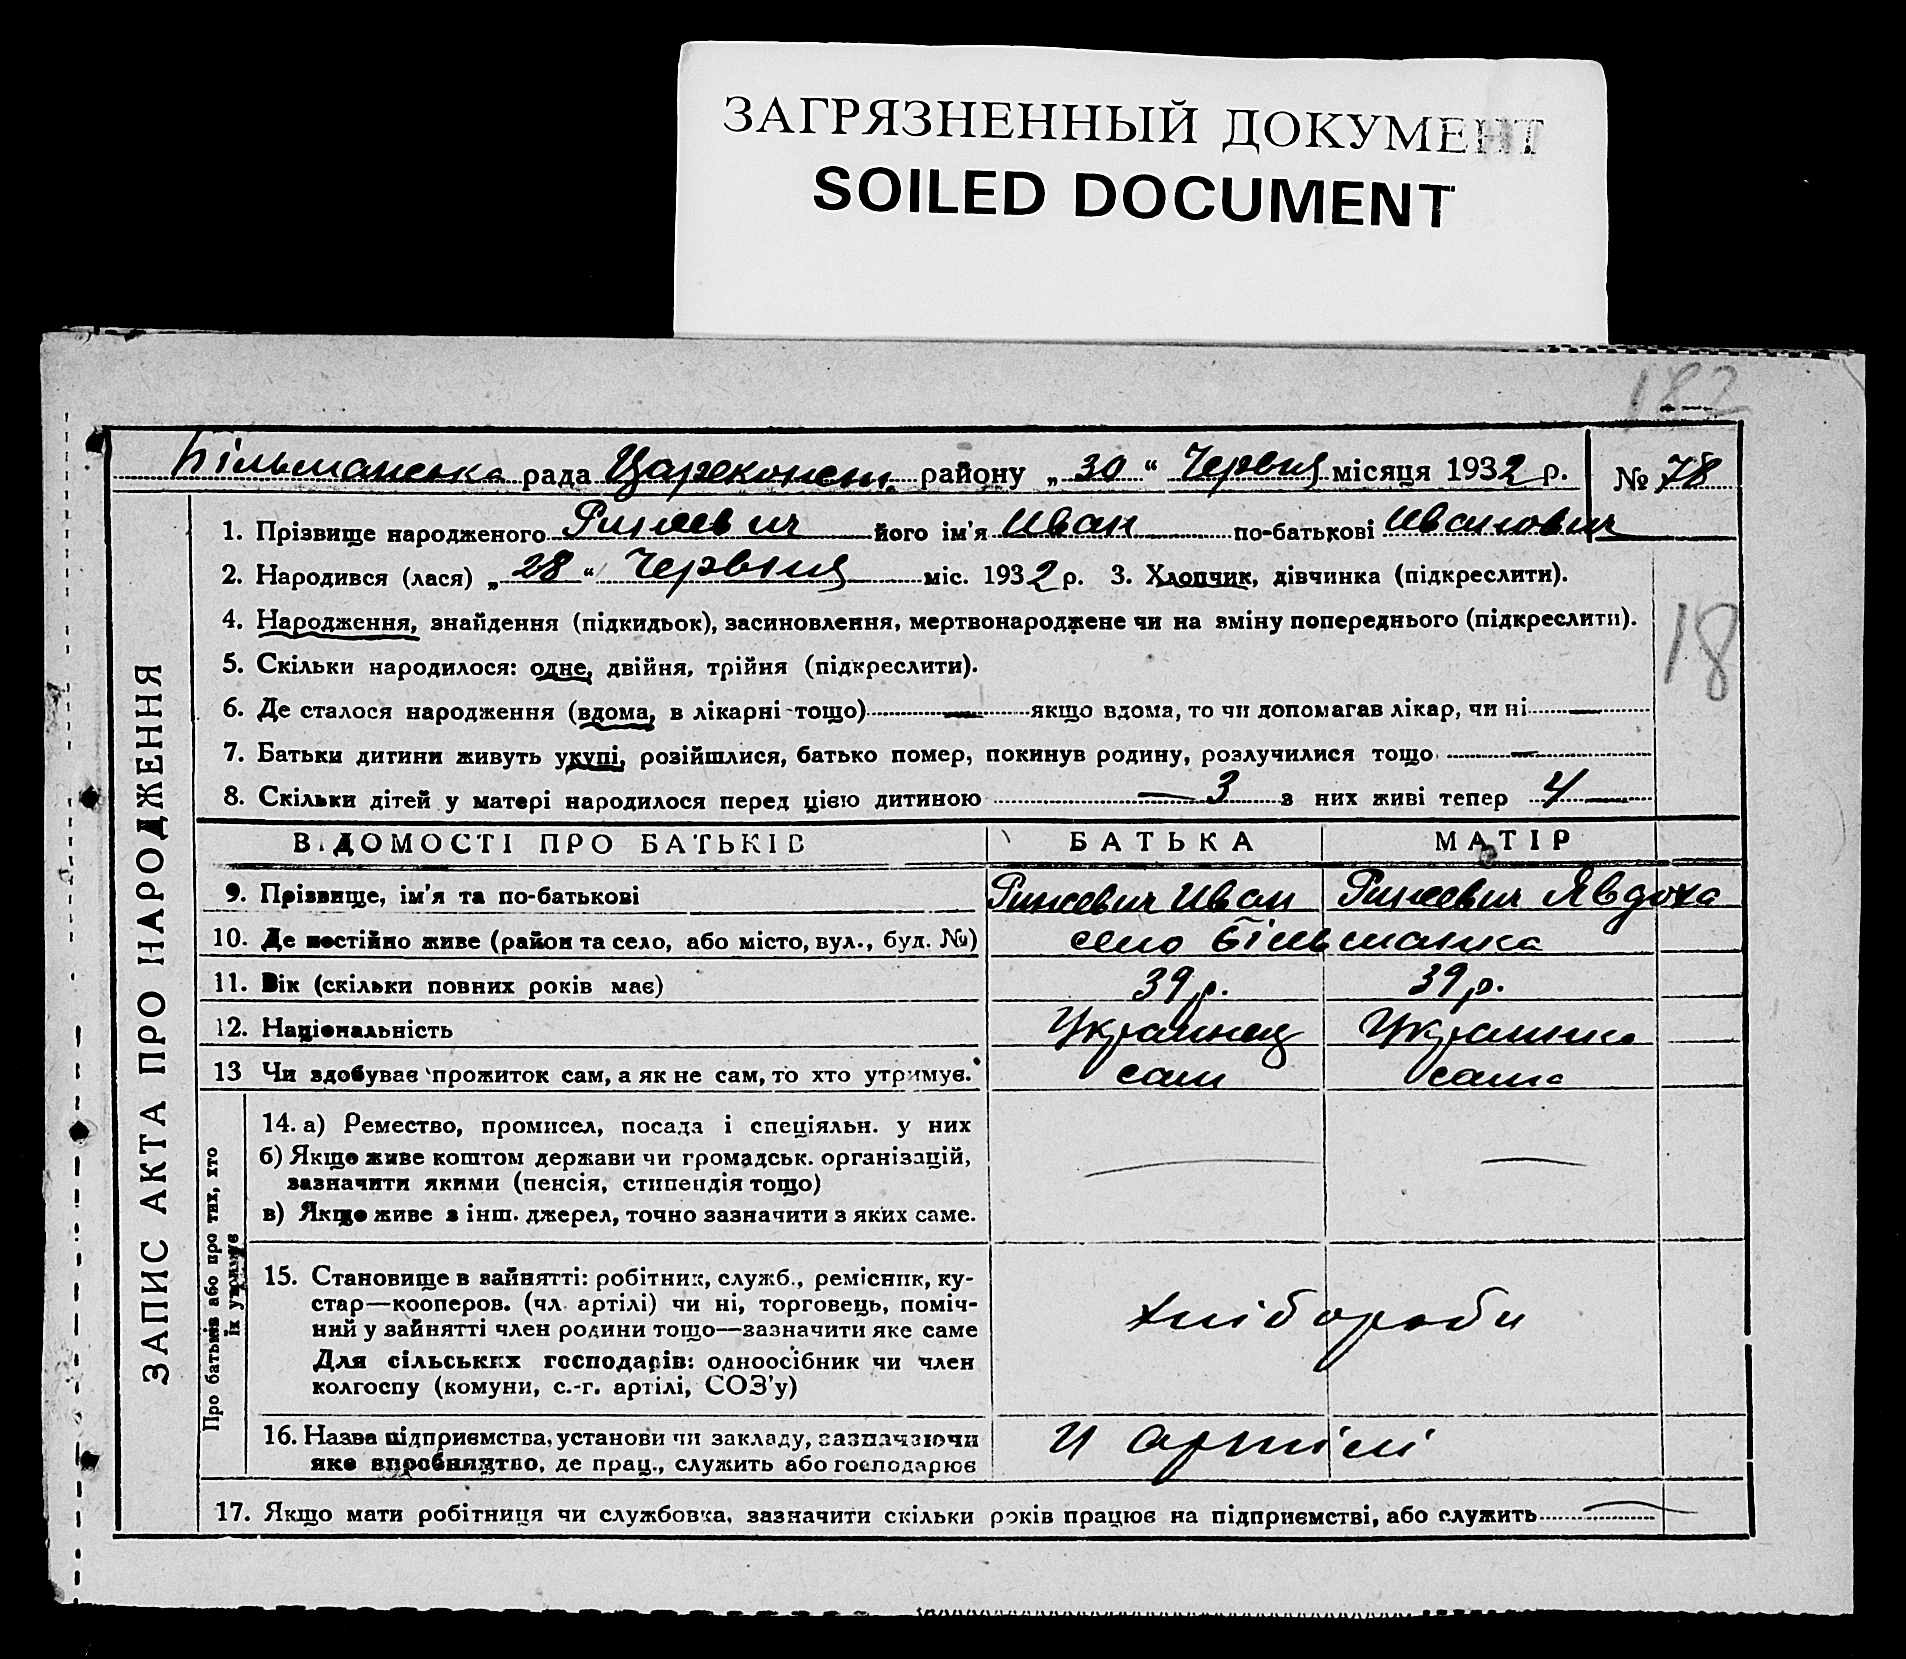 ЗАГРЯЗНЕННЫЙ ДОКУМЕНТ
SOILED DOCUMENT
182
Більманська рада Царекон район у „30“ Червня місяця 1932 р. № 78
1. Прізвище народженого його ім'я Иван по-батькові Иванович
2. Народився (лася) „28“ Червня міс. 1932 р. 3. Хлопчик, дівчинка (підкреслити).
4. Народження, знайдення (підкидьок), засиновлення, мертвонароджене чи на зміну попереднього (підкреслити).
18
5. Скільки народилося: одне, двійня, трійня (підкреслити).
6. Де сталося народження (вдома, в лікарні тощо) — якщо вдома, то чи допомагав лікар, чи ні —
7. Батьки дитини живуть укупі, розійшлися, батько помер, покинув родину, розлучилися тощо —
8. Скільки дітей у матері народилося перед цією дитиною — 3 з них живі тепер 4 —
ВІДОМОСТІ ПРО БАТЬКІВ БАТЬКА МАТІР
9. Прізвище, ім'я та по-батькові Иван Явдоха
10. Де постійно живе (район та село, або місто, вул., буд. №) село Більманка
11. Вік (скільки повних років має) 39 р. 39 р.
12. Національність Украинец Украинка
13 Чи здобуває прожиток сам, а як не сам, то хто утримує. сам сама
14. а) Ремество, промисел, посада і спеціяльн. у них
б) Якще живе коштом держави чи громадськ. організацій, — —
зазначити якими (пенсія, стипендія тощо)
в) Якще живе з інш. джерел, точно зазначити з яких саме.
15. Становище в зайнятті: робітник, служб., ремісник, ку-
стар—кооперов. (чл. артілі) чи ні, торговець, поміч- хлібороби
ний у зайнятті член родини тощо—зазначити яке саме
Для сільських господарів: одноосібник чи член
колгоспу (комуни, с.-г. артілі, СОЗ'у)
16. Назва підприємства, установи чи закладу, зазначаючи У артілі
яке виробництво, де прац., служить або господарює
17. Якщо мати робітниця чи службовка, зазначити скільки років працює на підприємстві, або служить —
ЗАПИС АКТА ПРО НАРОДЖЕННЯ
Про батьків або про тих, хто
їх утримує